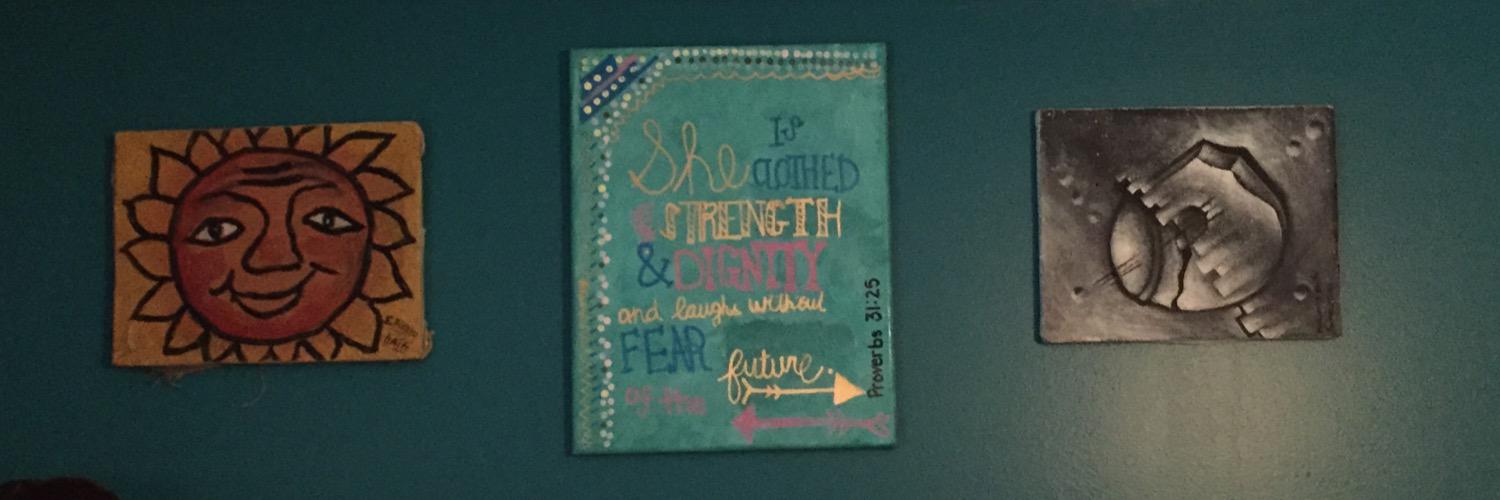 She Is
CLOTHED
STRENGTH
& DIGNITY
and laughs without
FEAR
of the future.
Proverbs 31:25